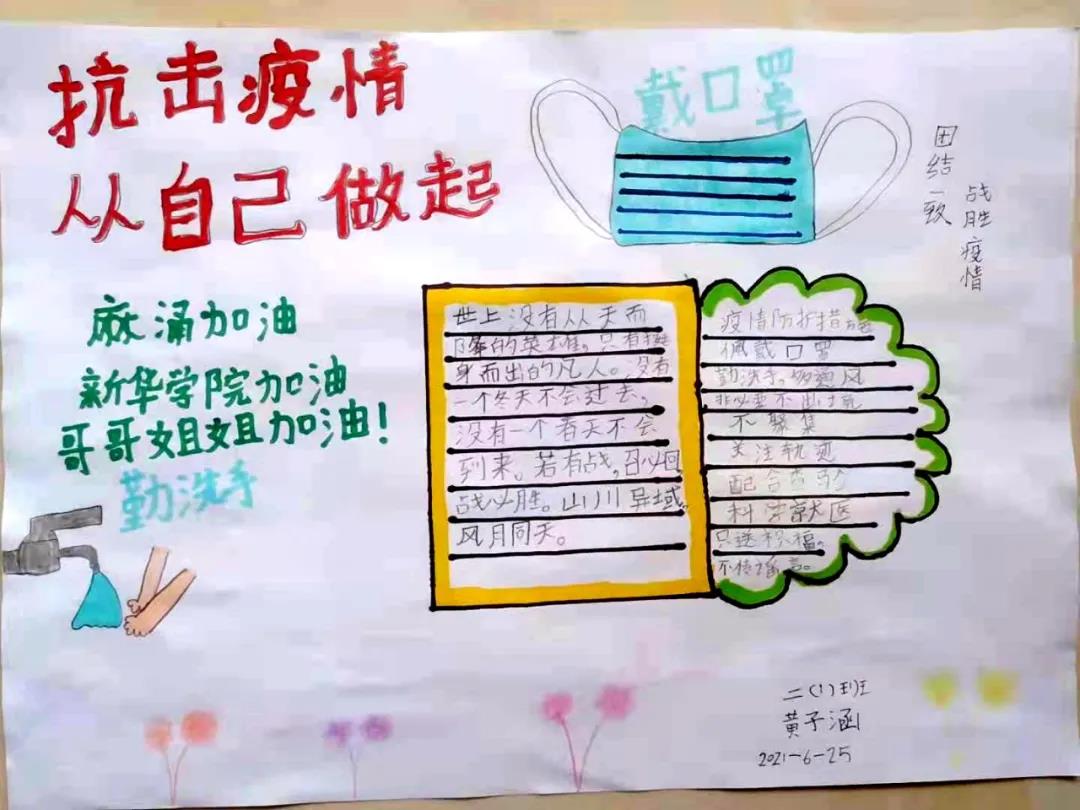 抗击疫情
从自己做起
戴口罩
团结一致
战胜疫情
麻涌加油
新华学院加油
哥哥姐姐加油!
勤洗手
世上没有从天而
降的英雄。只有挺
身而出的凡人。没有
一个冬天不会过去。
没有一个春天不会
到来。若有战,召必回,
战必胜。山川异域。
风月同天。
疫情防护措施
佩戴口罩
勤洗手。多通风
非必要不出
不聚集
关注轨迹
配合查验
科学就医
只送祝福。
不传播
二(1)班
黄子涵
2021-6-25